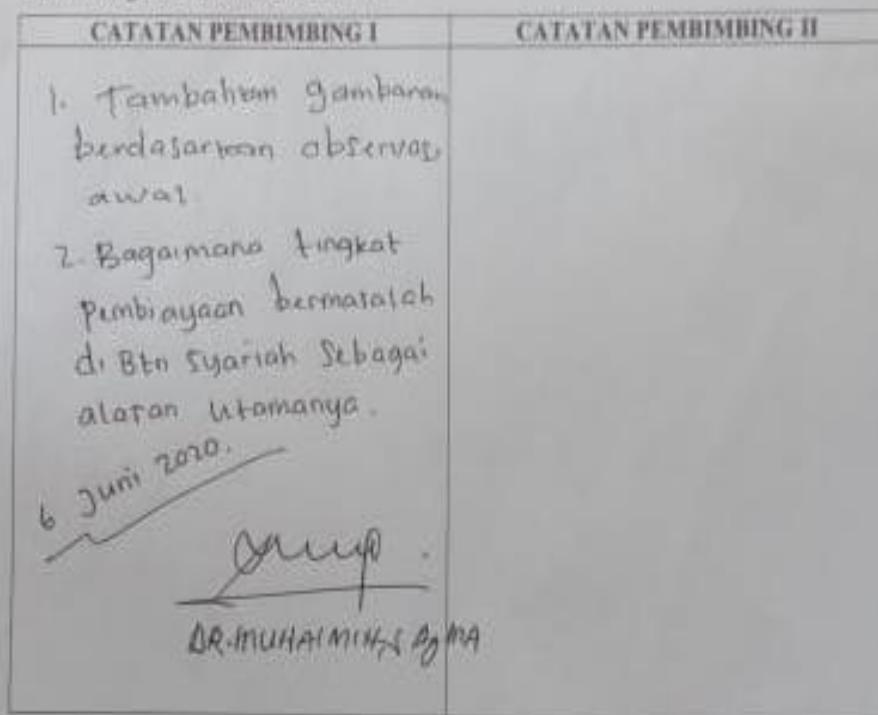 CATATAN PEMBIMBING I
CATATAN PEMBIMBING II
1. Tambahkan gambaran
berdasarkan observasi
awal.
2. Bagaimana tingkat
pembiayaan bermasalah
di Btn Syariah Sebagai
alasan utamanya.
6 Juni 2020.
DR. MUHAIMIN, S Ag MA